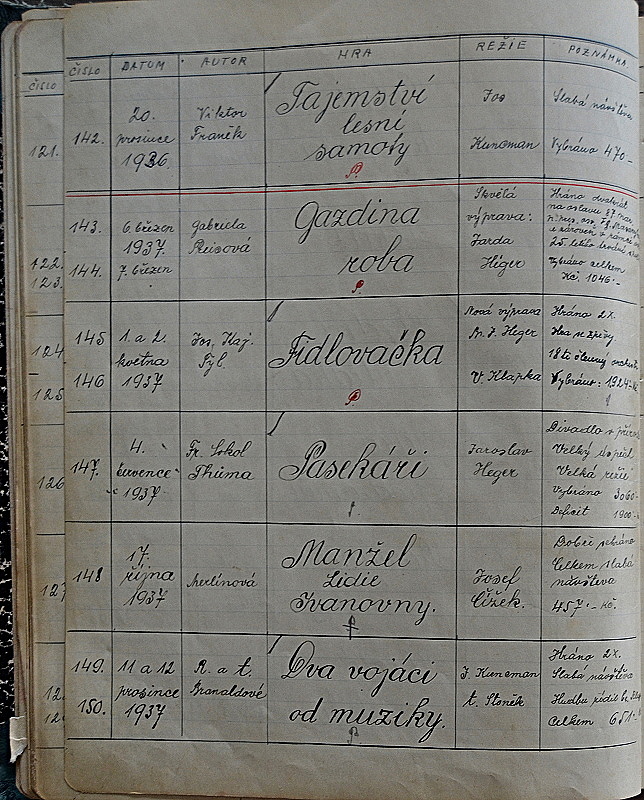 ČÍSLO
ČÍSLO DATUM AUTOR HRA REŽIE POZNÁMKA
121.
142.
20.
prosince
1936
Viktor
Franěk
Tajemství
lesní
samoty
Jos
Kunoman
Slabá návštěva
Vybráno 470.-
122.
123.
143.
144.
6. březen
1937.
7. březen
Gabriela
Preisová
Gazdina
roba
Skvělá
výprava:
Jarda
Héger
Hráno dvakrát
na oslavu 87. nar.
25. letého
Vybráno celkem
Kč. 1046.-
124
125
145
146
1. a 2.
května
1937
Jos. Kaj.
Tyl
Fidlovačka
Nová výprava
Heger
V. Klapka
Hráno 2X.
Hra se zpěvy.
18ti členný
Vybráno: 1924.-
126
147.
4.
července
1937
Fr. Sokol
Thůma
Pasekáři
Jaroslav
Heger
Divadlo v
Velký
Velká režie
Vybráno 3060.-
Deficit 1900.-
127
148
17.
října
1937
Merlínová
Manžel
Lidie
Ivanovny.
Josef
Čížek.
Dobře sehráno
Celkem slabá
návštěva
457.- Kč.
149.
150.
11 a 12
prosince
1937
R. a t.
Branaldové
Dva vojáci
od muziky.
J. Kunoman
t. Staněk
Hráno 2X.
Slabá návštěva
Hudbu řídil
Celkem 651.-